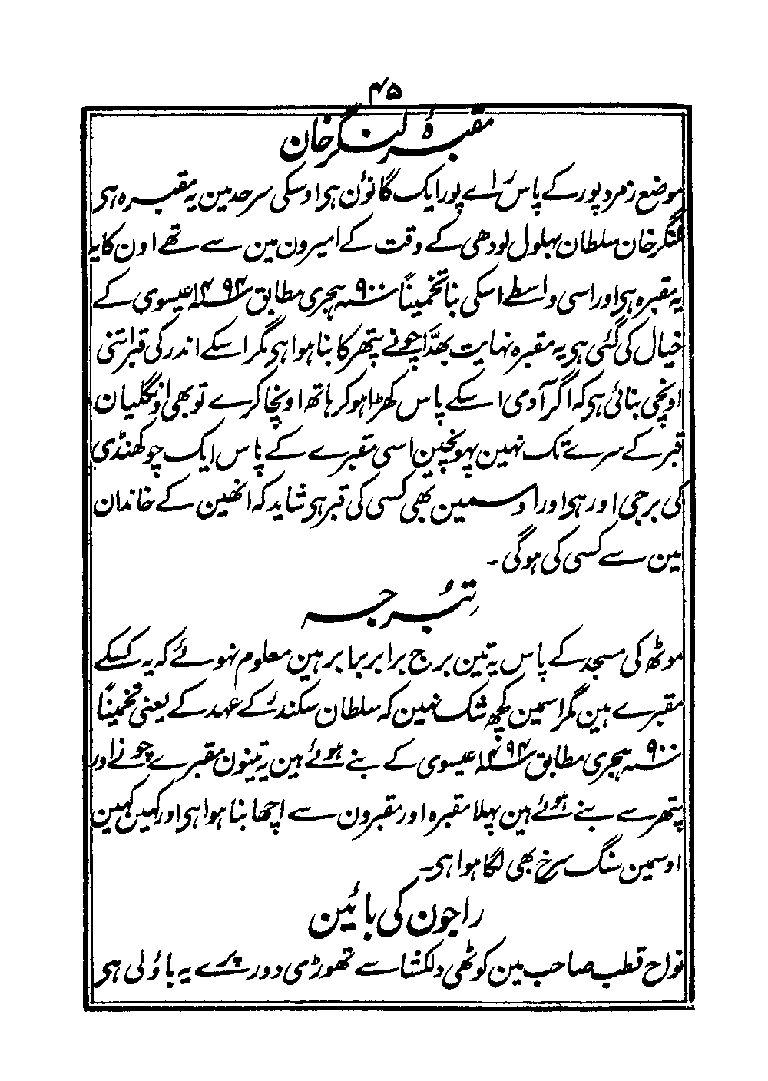 ۴۵
مقبرۂ لنگر خان
موضع زمرد پور کے پاس راے پور ایک گانوُن ہی اوسکی سرحد مین یہ مقبرہ ہی
لنگر خان سلطان بہلول لودھی کے وقت کے امیرون مین سے تھے اون کا یہ
یہ مقبرہ ہی اور اسی واسطے اسکی بنا تخمیناً ۹۰۰ سنہ ہجری مطابق ۱۴۹۴ سنہ عیسوی کے
خیال کی گئی ہی یہ مقبرہ نہایت بھدّا چونے پتھر کا بنا ہوا ہی مگر اسکے اندر کی قبر اتنی
اونچی بنائی ہی کہ اگر آدمی اسکے پاس کھڑا ہو کر ہاتھ اونچا کرے تو بھی اونگلیان
قبر کے سرے تک نہین پہونچین اسی مقبرے کے پاس ایک چوکھنڈی
کی برجی اور ہی اور اوسمین بھی کسی کی قبر ہی شاید کہ انھین کے خاندان
مین سے کسی کی ہوگی ۔
تِبُرجہ
موٹھ کی مسجد کے پاس یہ تین برج برابر برابر ہین معلوم نہوئے کہ یہ کسکے
مقبرے ہین مگر اسمین کچھ شک نہین کہ سلطان سکندر کے عہد کے یعنی تخمیناً
۹۰۰ سنہ ہجری مطابق ۱۴۹۴ سنہ عیسوی کے بنے ہوئے ہین یہ تینون مقبرے چونے اور
پتھر سے بنے ہوئے ہین پہلا مقبرہ اور مقبرون سے اچھا بنا ہوا ہی اور کہین کہین
اوسمین سنگ سرخ بھی لگا ہوا ہی۔
راجون کی بائین
نواح قطب صاحب مین کوٹھی دلکشا سے تھوڑی دور پرے یہ باؤلی ہی